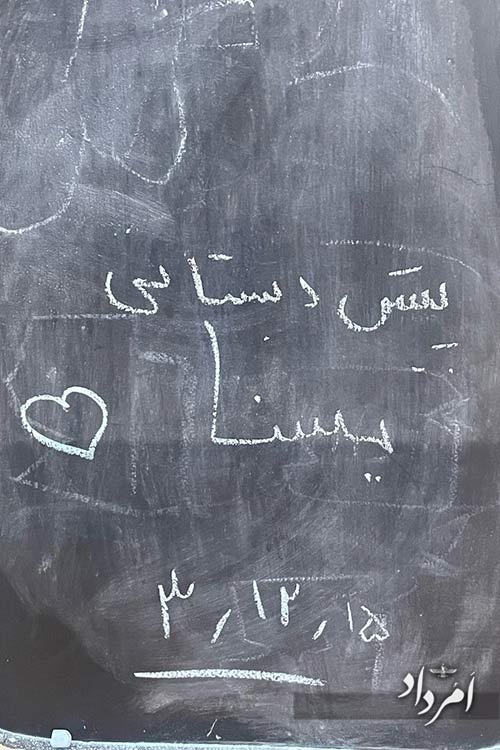 پیش دبستانی
یسنا
۳٫۱۲٫۱۵
اَمُرداد